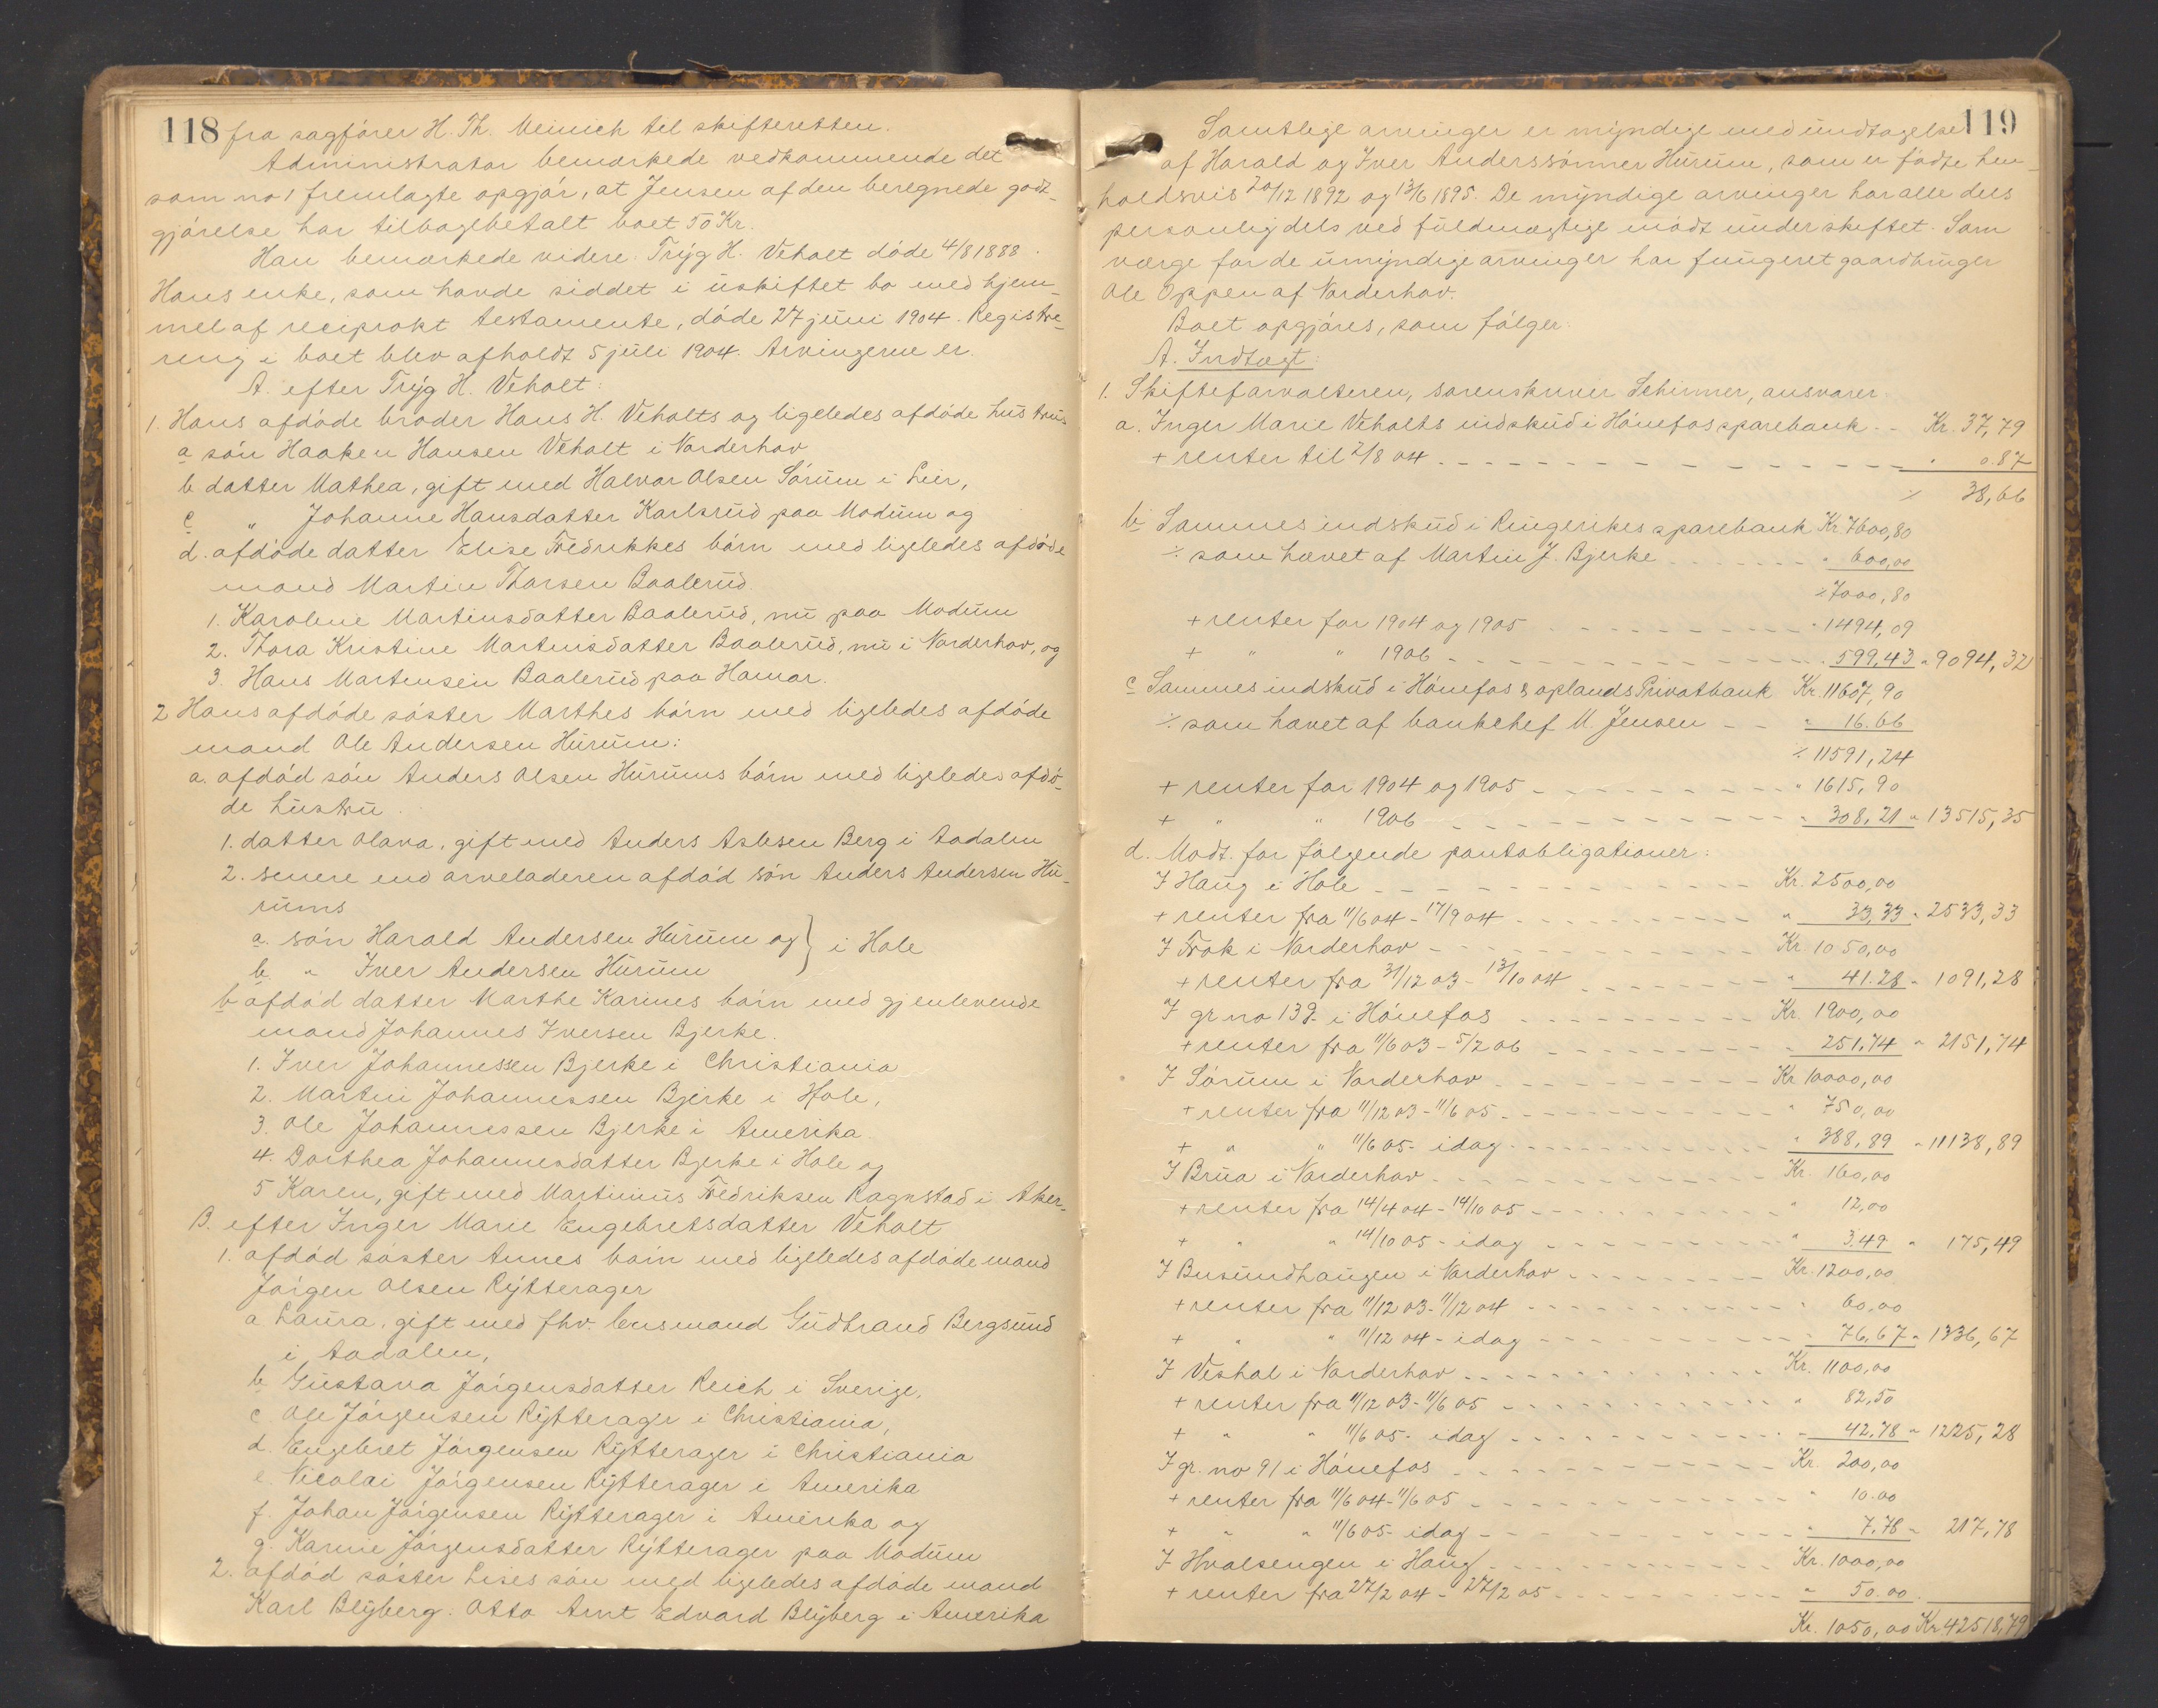 118
fra sagfører H. Th. Meinich til skifteretten.
Administrator bemærkede vedkommende det
som no 1 fremlagte opgjør, at Jensen af den beregnede godt-
gjørelse har tilbagebetalt boet 50 Kr.
Han bemærkede videre. Tryg H. Veholt døde 4/8 1888.
Hans enke, som havde siddet i uskiftet bo med hjem-
mel af reciprokt testamente, døde 27 juni 1904. Registre-
ring i boet blev afholdt 5 juli 1904. Arvingerne er.
A. efter Tryg H. Veholt:
1. Hans afdøde broder Hans H. Veholts og ligeledes afdøde hustrus
a søn Haaken Hansen Veholt i Norderhov
b datter Mathea, gift med Halvor Olsen Sørum i Lier,
c „ Johanne Hansdatter Karlsrud paa Modum og
d. afdøde datter Elise Fredrikkes børn med ligeledes afdøde
mand Martin Thorsen Baalerud.
1. Karoline Martinsdatter Baalerud, nu paa Modum
2. Thora Kristine Martinsdatter Baalerud, nu i Norderhov, og
3. Hans Martinsen Baalerud paa Hamar.
2 Hans afdøde søster Marthes børn med ligeledes afdøde
mand Ole Andersen Hurum:
a. afdød søn Anders Olsen Hurums børn med ligeledes afdø-
de hustru.
1. datter Olava, gift med Anders Aslesen Berg i Aadalen
2. senere end arveladeren afdød søn Anders Andersen Hu-
rums
a. søn Harald Andersen Hurum og } i Hole
b „ Iver Andersen Hurum
b afdød datter Marthe Karines børn med gjenlevende
mand Johannes Iversen Bjerke.
1. Iver Johannessen Bjerke i Christiania
2. Martin Johannessen Bjerke i Hole,
3. Ole Johannessen Bjerke i Amerika.
4. Dorthea Johannesdatter Bjerke i Hole og
5 Karen, gift med Martinius Fredriksen Ragnstad i Aker.
B. efter Inger Marie Engebretsdatter Veholt
1. afdød søster Annes børn med ligeledes afdøde mand
Jørgen Olsen Rytterager
a Laura, gift med fhv. lensmand Gudbrand Bergsund
i Aadalen,
b Gustava Jørgensdatter Reich i Sverige,
c. Ole Jørgensen Rytterager i Christiania,
d. Engebret Jørgensen Rytterager i Christiania
e. Nicolai Jørgensen Rytterager i Amerika
f. Johan Jørgensen Rytterager i Amerika og
g. Karine Jørgensdatter Rytterager paa Modum
2. afdød søster Lises søn med ligeledes afdøde mand
Karl Blyberg: Otto Arnt Edvard Blyberg i Amerika
119
Samtlige arvinger er myndige med undtagelse
af Harald og Iver Anderssønner Hurum, som er fødte hen-
holdsvis 20/12 1892 og 13/6 1895. De myndige arvinger har alle dels
personlig dels ved fuldmægtige mødt under skiftet. Som
værge for de umyndige arvinger har fungeret gaardbruger
Ole Oppen af Norderhov.
Boet opgjøres, som følger:
A. Indtægt:
1. Skifteforvalteren, sorenskriver Schirmer, ansvarer:
a. Inger Marie Veholts indskud i Hønefos sparebank - - Kr. 37,79
+ renter til 2/8 04 - - - „ 0.87
⁒ 38,66
b Sammes indskud i Ringerikes sparebank Kr. 7600,80
⁒ som hævet af Martin J. Bjerke - - - „ 600,00
⁒ 7000,80
+ renter for 1904 og 1905 - - - „ 1494,09
+ „ „ 1906 - - - „ 599,43 „ 9094,32
c Sammes indskud i Hønefos & oplands Privatbank Kr. 11607,90
⁒ som hævet af bankchef M. Jensen - - „ 16.66
⁒ 11591,24
+ renter for 1904 og 1905 - - - „ 1615,90
+ „ „ 1906 - - - „ 308,21 „ 13515,35
d. Modt. for følgende pantobligationer:
I Haug i Hole - - - Kr. 2500,00
+ renter fra 11/6 04 - 17/9 04 - - - „ 33,33 „ 2533,33
I Trok i Norderhov - - - Kr. 1050,00
+ renter fra 31/12 03 - 13/10 04 - - - „ 41.28 „ 1091,28
I gr no 139 i Hønefos - - - Kr. 1900,00
+ renter fra 11/6 03 - 5/2 06 - - - „ 251,74 „ 2151,74
I Sørum i Norderhov - - - Kr 10000,00
+ renter fra 11/12 03 - 11/6 05 - - - „ 750,00
+ „ „ 11/6 05 - idag - - - „ 388,89 „ 11138,89
I Brua i Norderhov - - - Kr. 160,00
+ renter fra 14/4 04 - 14/10 05 - - - „ 12,00
+ „ „ 14/10 05 - idag - - - „ 3.49 „ 175,49
I Busundhaugen i Norderhov - - - Kr. 1200,00
+ renter fra 11/12 03 - 11/12 04 - - - „ 60,00
+ „ „ 11/12 04 - idag - - - „ 76,67 „ 1336,67
I Veshol i Norderhov - - - Kr. 1100,00
+ renter fra 11/12 03 - 11/6 05 - - - „ 82,50
+ „ „ 11/6 05 - idag - - - „ 42,78 „ 1225,28
I gr. no 91 i Hønefos - - - Kr. 200,00
+ renter fra 11/6 04 - 11/6 05 - - - „ 10.00
+ „ „ 11/6 05 - idag - - - „ 7,78 „ 217,78
I Hvalsengen i Haug - - - Kr. 1000,00
+ renter fra 27/2 04 - 27/2 05 - - - „ 50.00
Kr. 1050,00 Kr 42518,79